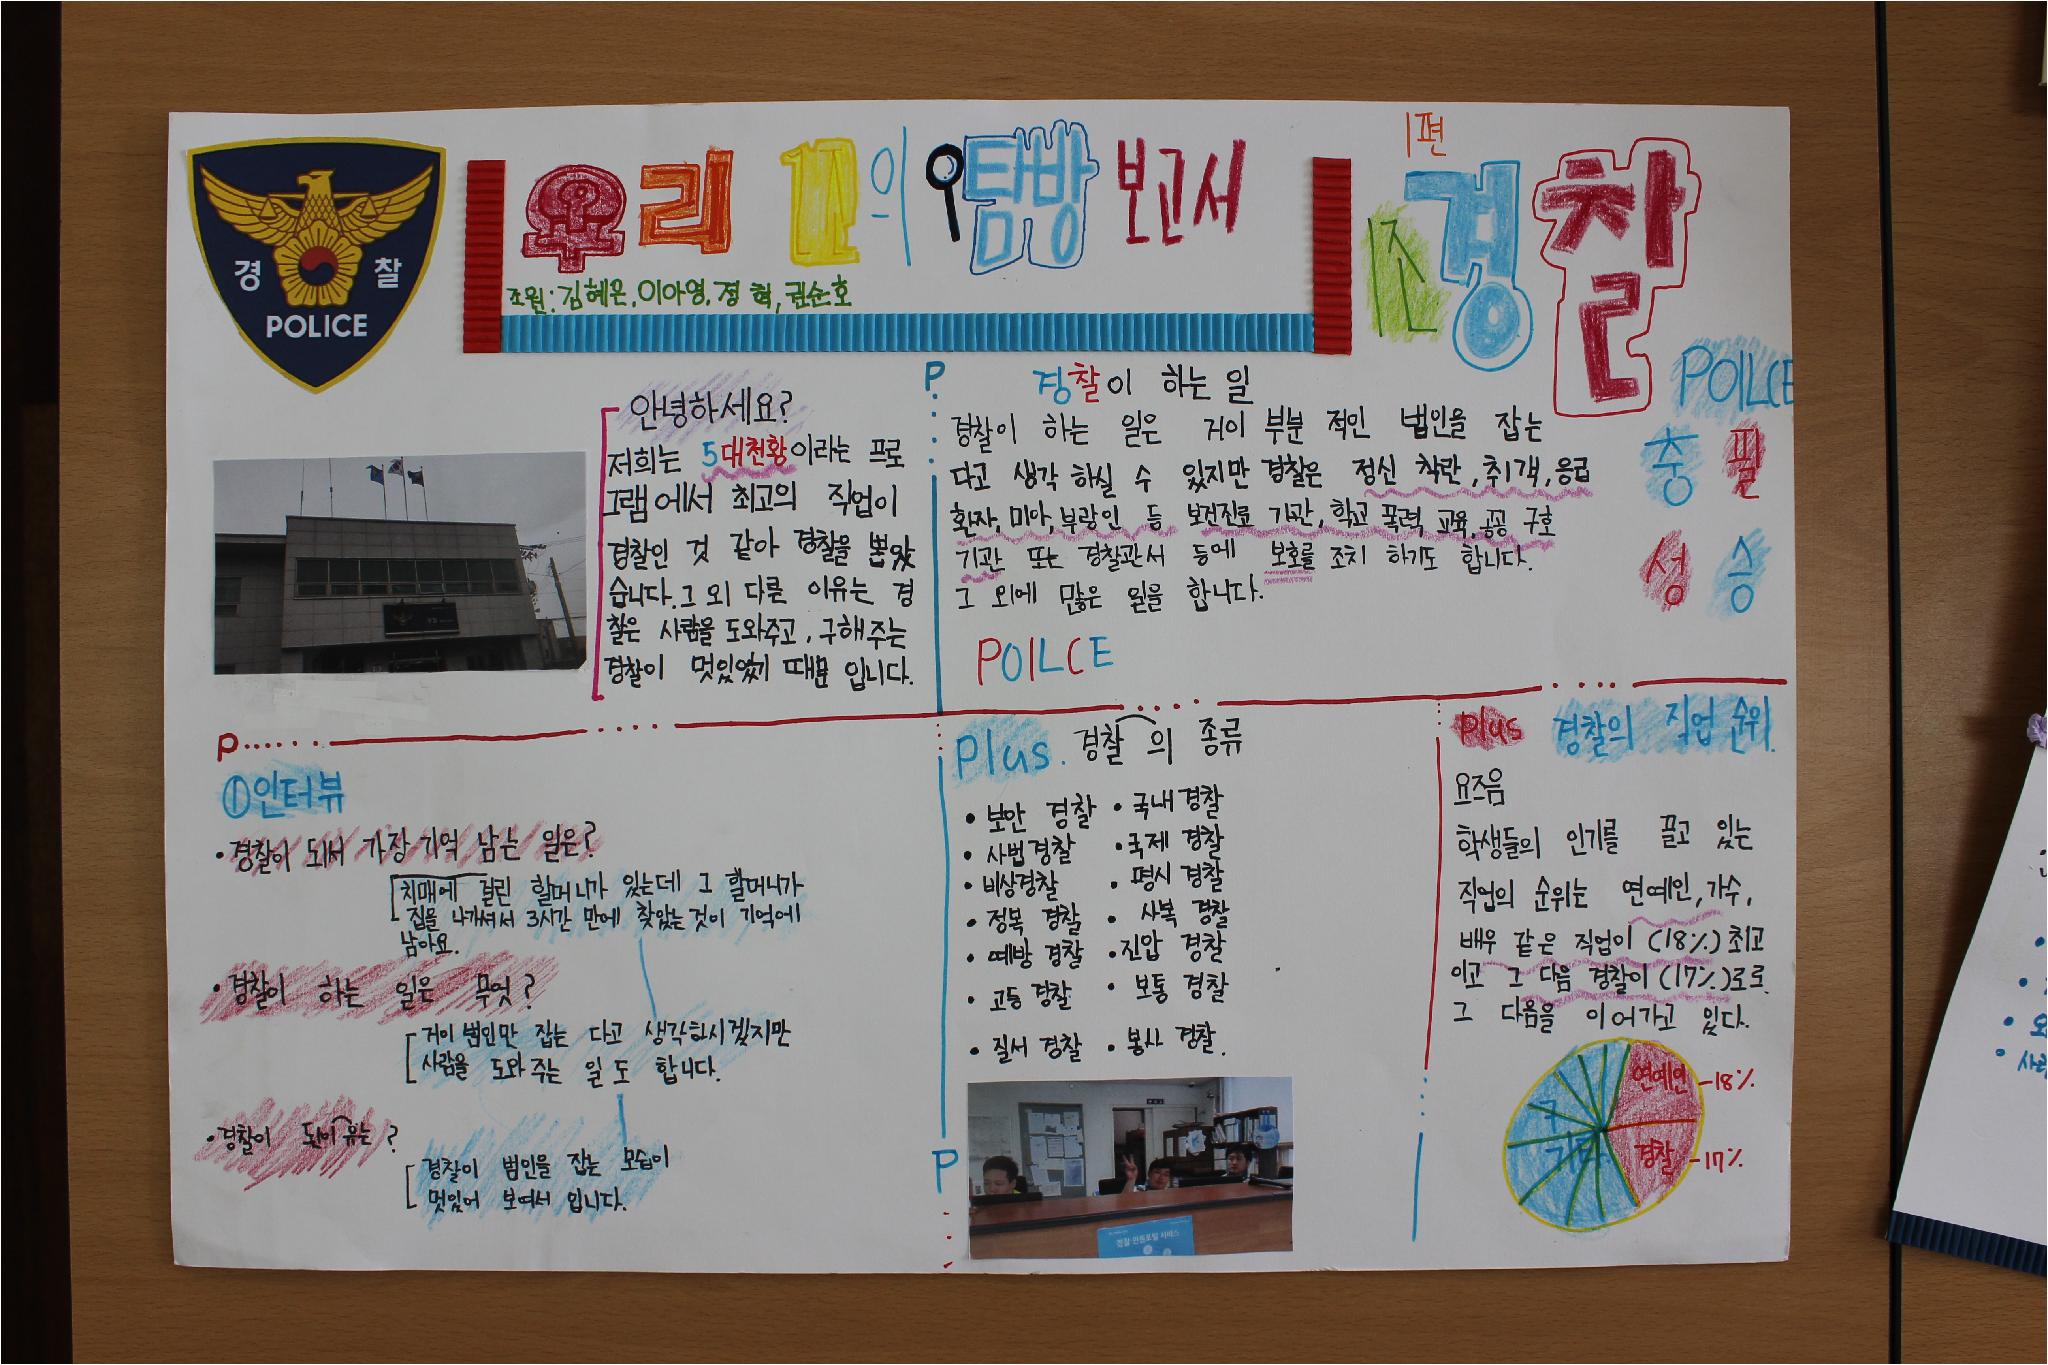 경 찰
POLICE
우리 반의 탐방 보고서
조원:김혜은,이아영,정 혁,권순호
1편
경찰
POILCE
충 필
성 승
안녕하세요?
저희는 5대천황이라는 프로
그램에서 최고의 직업이
경찰인 것 같아 경찰을 뽑았
습니다.그 외 다른 이유는 경
찰은 사람을 도와주고, 구해주는
경찰이 멋있었기 때문 입니다.
P
경찰이 하는 일
경찰이 하는 일은 거이 부분 적인 범인을 잡는
다고 생각 하실 수 있지만 경찰은 정신 착란,취객,응급
환자,미아,부랑인 등 보건진료 기관,학교 폭력,교육,공공 구호
기관 또는 경찰관서 등에 보호를 조치 하기도 합니다.
그 외에 많은 일을 합니다.
POILCE
P
①인터뷰
• 경찰이 되서 가장 기억 남는 일은?
치매에 걸린 할머니가 있는데 그 할머니가
집을 나가셔서 3시간 만에 찾았는것이 기억에
남아요.
• 경찰이 하는 일은 무엇?
거이 범인만 잡는 다고 생각하시겠지만
사람을 도와 주는 일 도 합니다.
• 경찰이 된이유는?
경찰이 범인을 잡는 모습이
멋있어 보여서 입니다.
P
Plus. 경찰의 종류
• 보안 경찰 • 국내경찰
• 사법경찰 • 국제 경찰
• 비상경찰 • 평시 경찰
• 정복 경찰 사복 경찰
• 예방 경찰 • 진압 경찰
• 고등 경찰 • 보통 경찰
• 질서 경찰 • 봉사 경찰.
경찰 민원포털 서비스
plus 경찰의 직업 순위.
요즈음
학생들의 인기를 끌고 있는
직업의 순위는 연예인,가수,
배우 같은 직업이 (18%) 최고
이고 그 다음 경찰이 (17%)로로
그 다음을 이어가고 있다.
연예인 -18%
경찰 -17%
기타